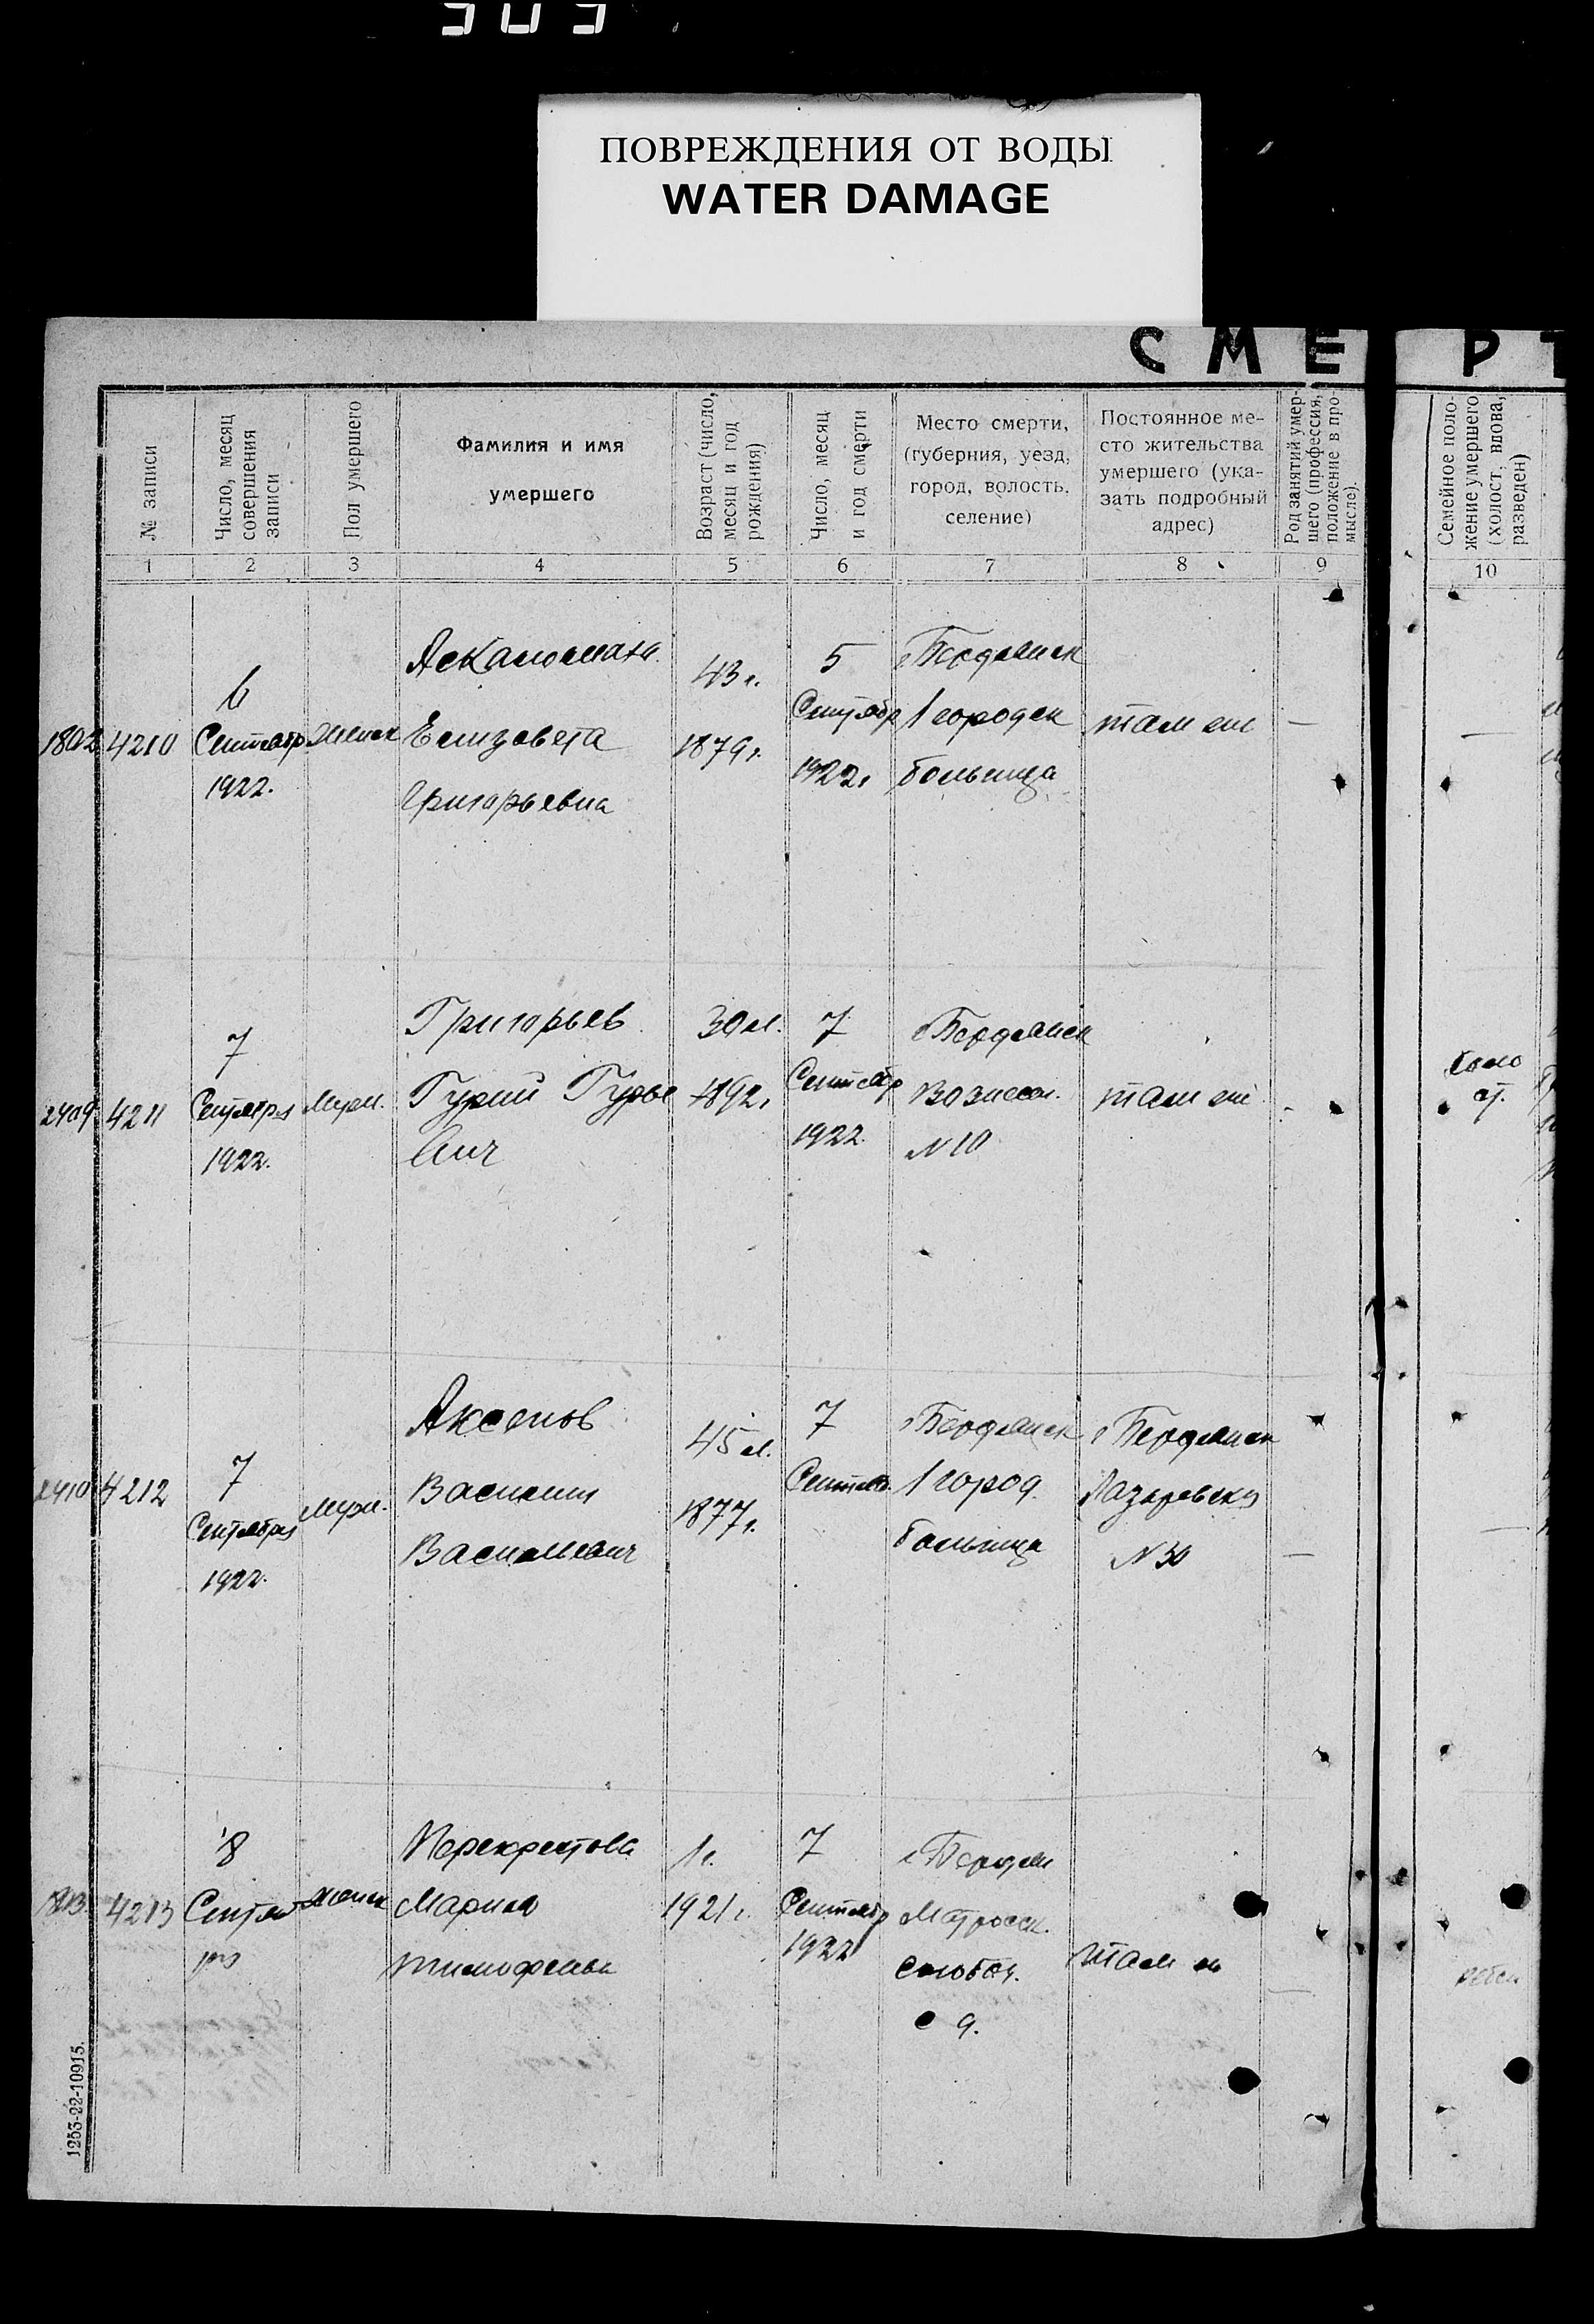 ПОВРЕЖДЕНИЯ ОТ ВОДЫ
WATER DAMAGE
СМЕ Р
№ записи
Число, месяц
совершения
записи
Пол умершего
Фамилия и имя
умершего
Возраст (число,
месяц и год
рождения)
Число, месяц
и год смерти
Место смерти,
(губерния, уезд,
город, волость,
селение)
Постоянное ме-
сто жительства
умершего (ука-
зать подробный
адрес)
Род занятий умер-
шего (профессия,
положение в про-
мысле).
Семейное поло-
жение умершего
(холост, вдова,
разведен)
1 2 3 4 5 6 7 8 9 10
4210
6
Сентябр
1922.
Женск
Елизовета
Григорьевна
43 г.
1879 г.
5
Сентябр
1922 г
Бердянск
1 городск
больница
там же
2409
4211
7
Сентября
1922.
Муж.
Григорьев
Гурий Гурье
вич
30 л.
1892 г
7
Сентябр
1922.
Бердянск
Вознесен.
N 10
там же
холо
ст.
2410
4212
7
Сентября
1922.
Муж.
Аксенов
Василий
Васильевич
45 л.
1877 г.
7
Сентяб.
г Бердянск
1 город.
больница
г Бердянск
Лазаревск
N 30
4213
8
Сентяб
ря
Женск
Перекрестова
Мария
Тимофеевна
1 г.
1921 г.
7
Сентябр
1922
Бердян
Матросск.
слобод.
9.
там ж
1253-22-10915.